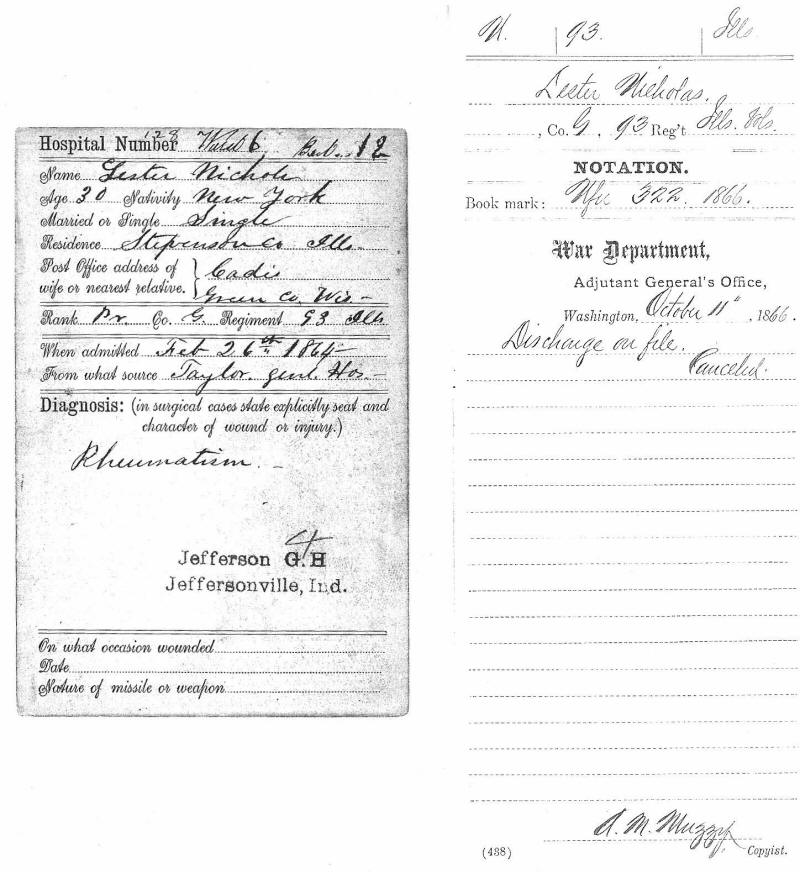 Hospital Number 128 Ward 6 Bed 12
Name Lester Nichols
Age 30 Nativity New York
Married or Single Single
Residence Stepenson Co Ills.
Post Office address of wife or nearest relative. } Cadis
Green Co. Wis -
Rank Pr Co. G Regiment 93 Ills
When admitted Feb 26th 1864
From what source Taylor. genl. Hos. -
Diagnosis: (in surgical cases state explicitly seat and
character of wound or injury.)
Rheumatism. -
Jefferson G. H
Jeffersonville, Ind.
On what occasion wounded
Date
Nature of missile or weapon
N. | 93. | Ills.
Lester Nicholas.
, Co. G , 93 Reg't Ills. Vols.
NOTATION.
Book mark: 322. 1866.
War Department,
Adjutant General's Office,
Washington, October 11" , 1866.
Discharge on file.
Canceled.
A. M. Muzzy
(438) Copyist.